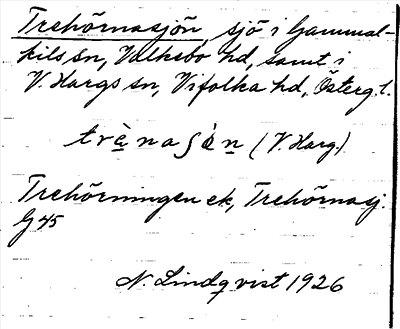 Trehörnasjön sjö i Gammal-
kils sn, Valkebo hd, samt i
V. Hargs sn, Vifolka hd, Österg. l.
trènaʃǿn (V. Harg.)
Trehörningen ek, Trehörnasj.
G 45
N. Lindqvist 1926